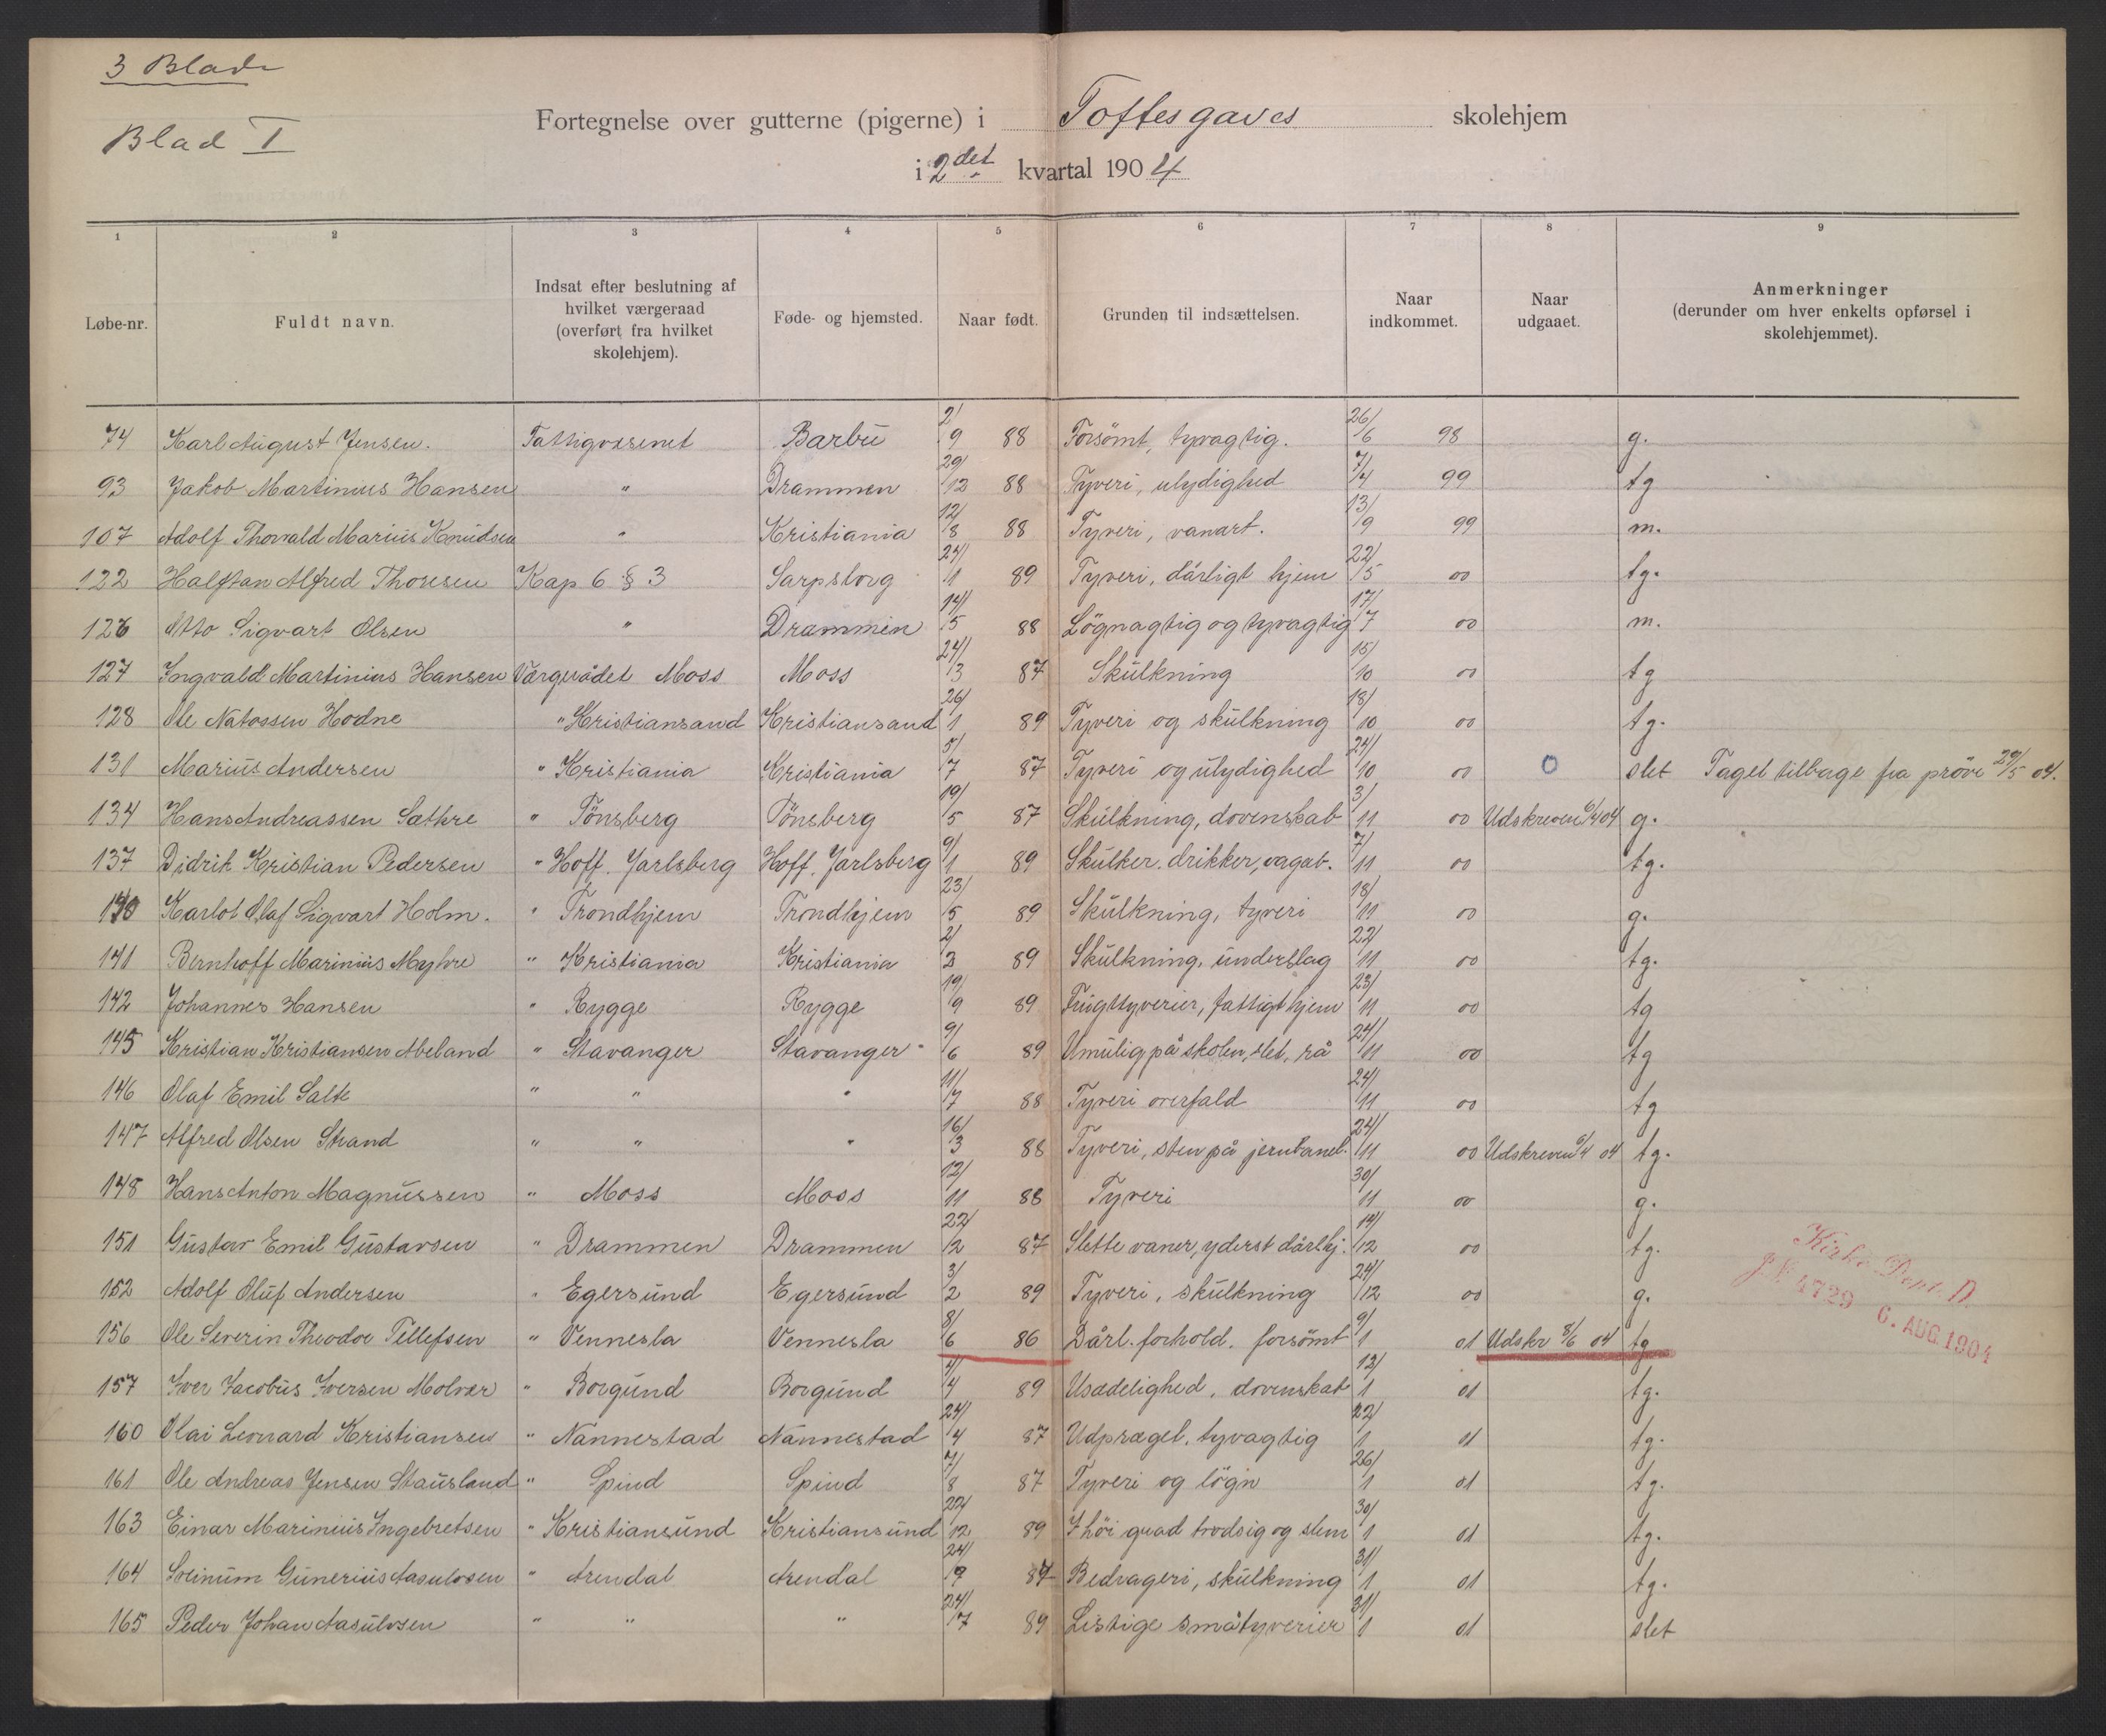 3 Blade
Blad I
Fortegnelse over gutterne (pigerne) i Toftes gaves skolehjem
i 2det kvartal 1904
1 2 3 4 5 6 7 8 9
Løbe-nr. Fuldt navn. Indsat efter beslutning af hvilket værgeraad (overført fra hvilket skolehjem). Føde- og hjemsted. Naar født. Grunden til indsættelsen. Naar indkommet. Naar udgaaet. Anmerkninger (derunder om hver enkelts opførsel i skolehjemmet).
74 Karl August Jensen. Fattigvæsenet Barbu 2/9 88 Forsömt, tyvagtig. 26/6 98 g.
93 Jakob Martinius Hansen " Drammen 29/12 88 Tyveri, ulydighed 7/4 99 tg
107 Adolf Thorvald Marius Knudsen " Kristiania 12/8 88 Tyveri, vanart. 13/9 99 m.
122 Halfdan Alfred Thoresen Kap 6 § 3 Sarpsborg 24/1 89 Tyveri, dårligt hjem 22/5 00 tg.
126 Otto Sigvart Olsen " Drammen 14/5 88 Lögnagtig og tyvagtig 17/7 00 m.
127 Ingvald Martinius Hansen Værgerådet Moss Moss 24/3 87 Skulkning 15/10 00 tg
128 Ole Natossen Hodne " Kristiansand Kristiansand 26/1 89 Tyveri og skulkning 18/10 00 tg.
131 Marius Andersen " Kristiania Kristiania 5/7 87 Tyveri og ulydighed 24/10 00 O slet Taget tilbage fra pröve 29/5 04.
134 Hans Andreassen Sæthre " Tönsberg Tönsberg 19/5 87 Skulkning, dovenskab 3/11 00 Udskreven 9/4 04 g.
137 Didrik Kristian Pedersen " Hoff. Jarlsberg Hoff. Jarlsberg 9/1 89 Skulker. drikker, vagab. 7/11 00 tg.
140 Karlot Olaf Sigvart Holm. " Trondhjem Trondhjem 23/5 89 Skulkning, tyveri 18/11 00 g.
141 Bernhoff Marinius Myhre " Kristiania Kristiania 2/3 89 Skulkning, underslag 22/11 00 tg.
142 Johannes Hansen " Rygge Rygge 19/9 89 Frugttyverier, fattigt hjem 23/11 00 tg
145 Kristian Kristiansen Abeland " Stavanger Stavanger 9/6 89 Umulig på skolen, slet, rå 24/11 00 tg
146 Olaf Emil Salte " " " 11/7 88 Tyveri overfald 24/11 00 tg
147 Alfred Olsen Strand " " " 16/3 88 Tyveri, sten på jernbanel. 24/11 00 Udskreven 9/4 04 tg.
148 Hans Anton Magnussen " Moss Moss 12/11 88 Tyveri 30/11 00 g.
151 Gustav Emil Gustavsen " Drammen Drammen 22/2 87 Slette vaner, yderst dårl hj. 14/12 00 tg.
152 Adolf Oluf Andersen " Egersund Egersund 3/2 89 Tyveri, skulkning 24/12 00 g.
156 Ole Severin Theodor Tellefsen " Vennesla Vennesla 8/6 86 Dårl. forhold. forsömt 9/1 01 Udskr 8/6 04 tg
157 Iver Jacobus Iversen Molvær " Borgund Borgund 4/4 89 Usædelighed, dovenskab 12/1 01 tg.
160 Olai Leonard Kristiansen " Nannestad Nannestad 24/4 87 Udpræget, tyvagtig 22/1 01 tg.
161 Ole Andreas Jensen Stausland " Spind Spind 7/8 87 Tyveri og lögn 26/1 01 tg.
163 Einar Marinius Ingebretsen " Kristiansund Kristiansund 22/12 89 I höi grad trodsig og slem 30/1 01 tg.
164 Sveinum Gunerius Aasulvsen " Arendal Arendal 24/9 87 Bedrageri, skulkning 31/1 01 tg.
165 Peder Johan Aasulvsen " " " 24/7 89 Listige småtyverier 31/1 01 slet
Kirke Dept. D.
J. N. 4729 6. AUG. 1904